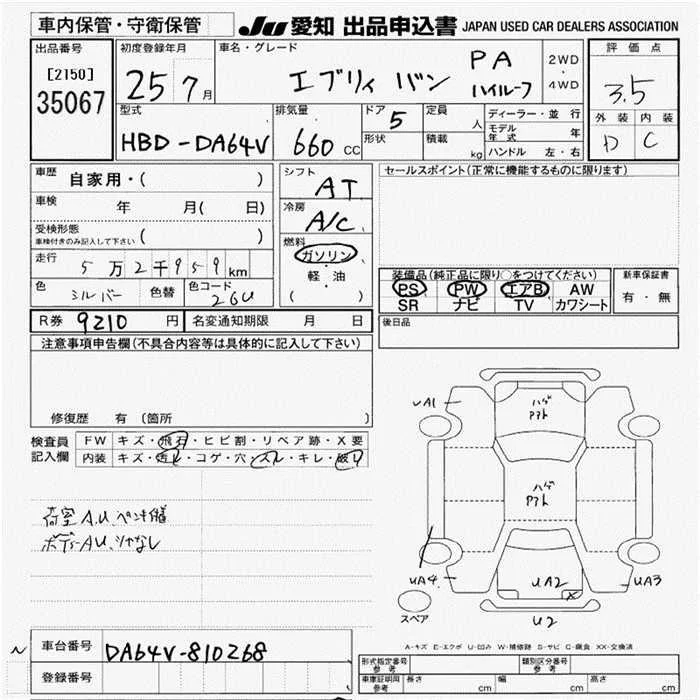 車内保管・守衛保管
JU 愛知 出品申込書 JAPAN USED CAR DEALERS ASSOCIATION
出品番号
[2150]
35067
初度登録年月
25 7月
車名・グレード
エブリィ バン
PA
ハイルーフ
2WD
・
4WD
評価点
3.5
外装 内装
D C
型式
HBD-DA64V
排気量
660 CC
ドア 5
形状
定員 人
積載 kg
ディーラー・並行
モデル年式 年
ハンドル 左・右
車歴 自家用・( )
車検 年 月( 日)
受検形態
車検付きのみ記入して下さい ( )
走行 5万2千959km
色 シルバー 色替 色コード 26U
シフト
AT
冷房
A/C
燃料
ガソリン
軽・油
( )
R券 9210 円 名変通知期限 月 日
セールスポイント(正常に機能するものに限ります)
装備品(純正品に限り○をつけてください)
PS PW エアB AW
SR ナビ TV カワシート
新車保証書
有・無
後日品
注意事項申告欄(不具合内容等は具体的に記入して下さい)
修復歴 有 (箇所
検査員記入欄
FW キズ・飛石・ヒビ割・リペア跡・X要
内装 キズ・汚レ・コゲ・穴・スレ・キレ・破レ
荷室AU、ペンキ様
ボディーAU、
UA1
ハゲ
ハゲ
UA4
UA2
UA3
U2
スペア
A-キズ E-エクボ U-凹み W-補修跡 S-サビ C-腐食 XX-交換済
車台番号 DA64V-810268
登録番号
型式指定番号参考
類別区分番号参考
車庫証明用参考 長さ cm 幅 cm 高さ cm